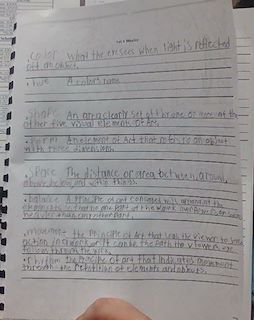 • Color - What the eye sees when light is reflected
off an object.
• Hue A color's name
• Shape An area clearly set off by one or more of the
other five visual elements of art.
• Form An element of Art that refers to an object
with three dimensions.
• Space The distance or area between, around,
above, below, and within things.
• balance A principle of art concerned with arranging the
elements so that no one part of the work overpowers, or seems
heavier than any other part.
• movement the principle of Art that leads the viewer to sense
action in a work, or it can be the path the viewer's eye
follows through the work.
• Rhythm the principle of art that indicates movement
through the repetition of elements and objects.